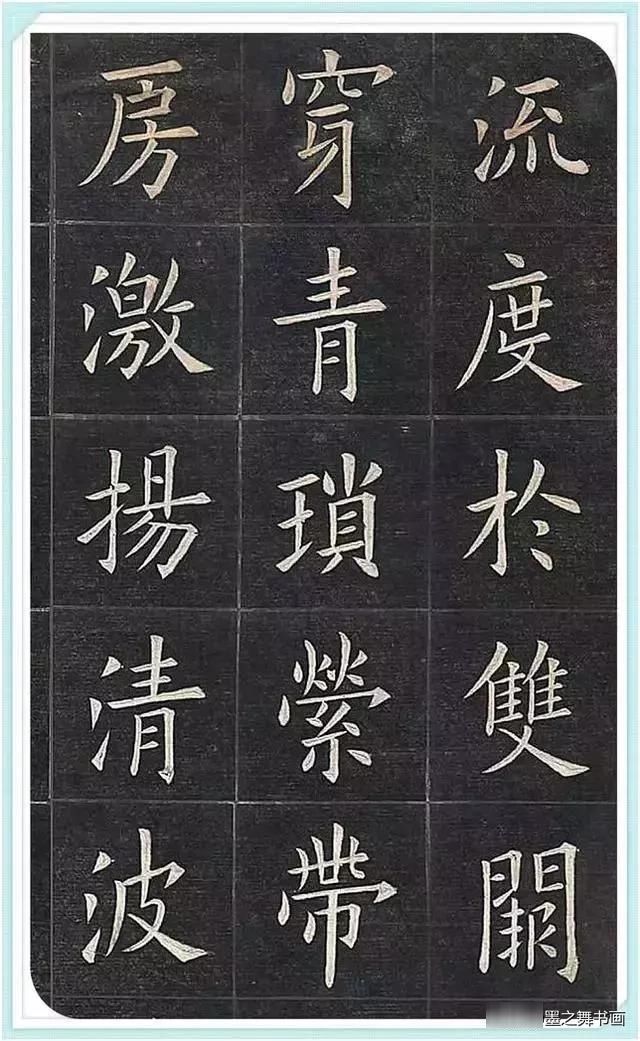 流度於雙闕
穿青瑣縈帶
房激揚清波
墨之舞书画